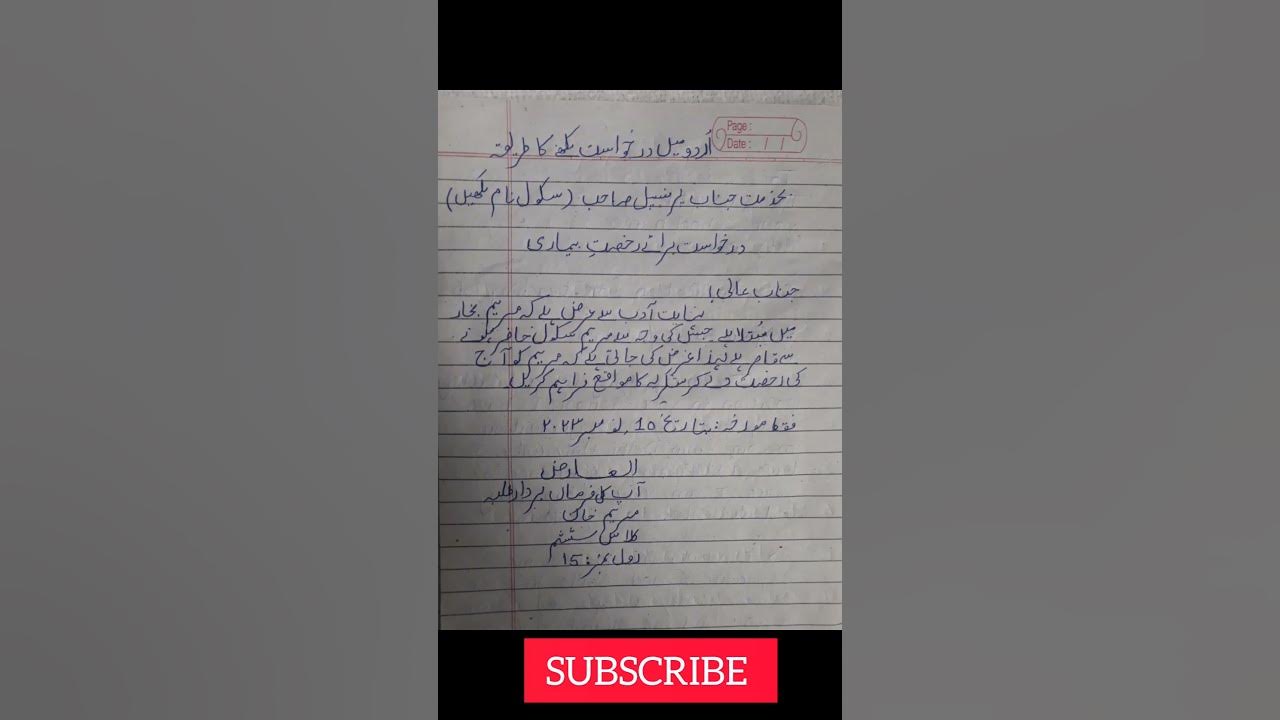 Page :
Date : / /
اُردو میں درخواست لکھنے کا طریقہ
بخدمت جناب پرنسپل صاحب (سکول نام لکھیں)
درخواست برائے رخصتِ بیماری
جناب عالی!
نہایت آدب سے عرض ہے کہ مریم بخار
میں مُبتلا ہے جس کی وجہ سے مریم سکول حاضر ہونے
سے قاصر ہے لہٰذا عرض کی جاتی ہے کہ مریم کو آج
کی رخصت دے کر شکریہ کا مواقع فراہم کریں۔
فقط مورخہ: بتاریخ 10 نومبر ۲۰۲۳
العارض
آپ کی فرماں بردار طلبہ
مریم خان
کلاس ششم
رول نمبر: 15
SUBSCRIBE